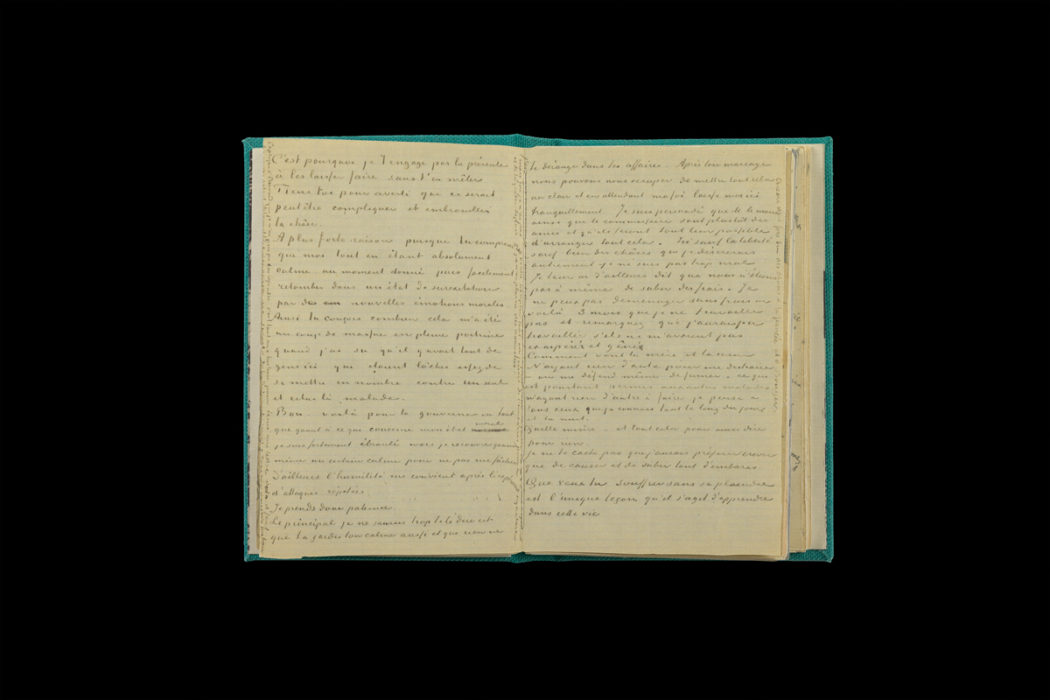 C'est pourquoi je t'engage par la présente
à les laisser faire sans t'en mêler
Tiens toi pour averti que ce serait
peutêtre compliquer et embrouiller
la chôse.
A plus forte raison puisque tu comprendras
que moi tout en étant absolument
calme au moment donné puis facilement
retomber dans un état de surexcitation
par des nouvelles émotions morales
Aussi tu conçois combien cela m'a été
un coup de massue en pleine poitrine
quand j'ai su qu'il y avait tant de
gens ici qui étaient lâches assez de
se mettre en nombre contre un seul
et celui là malade.
Bon – voilà pour ta gouverne, en tant
que quant à ce que concerne mon état moral
je suis fortement ébranlé mais je recouvre quand
même un certain calme pour ne pas me fâcher
D'ailleurs l'humilité me convient après l'expérience
d'attaques répétées.
Je prends donc patience
Le principal je ne saurais trop te le dire est
que tu gardes ton calme aussi et que rien ne
te dérange dans tes affaires. Après ton mariage
nous pouvons nous occuper de mettre tout cela
au clair et en attendant ma foi laisse moi ici
tranquillement. Je suis persuadé que M. le maire
ainsi que le commissaire sont plustôt des
amis et qu'ils feront tout leur possible
d'arranger tout cela. Ici sauf la liberté
sauf bien des chôses que je désirerais
autrement je ne suis pas trop mal
Je leur ai d'ailleurs dit que nous n'étions
pas à même de subir des frais. Je
ne peux pas demenager sans frais or
voilà 3 mois que je ne travaille
pas et remarquez que j'aurais pu
travailler s'ils ne m'avaient pas
exaspéré et gêné
Comment vont la mère et la soeur
N'ayant rien d'autre pour me distraire
– on me défend même de fumer – ce qui
est pourtant permis aux autres malades
n'ayant rien d'autre à faire je pense à
tous ceux que je connais tout le long du jour
et la nuit.
Quelle misère – et tout cela pour ainsi dire
pour rien.
Je ne te cache pas que j'aurais préféré crever
que de causer et de subir tant d'embarras.
Que veux tu souffrir sans se plaindre
est l'unique leçon qu'il s'agit d'apprendre
dans cette vie